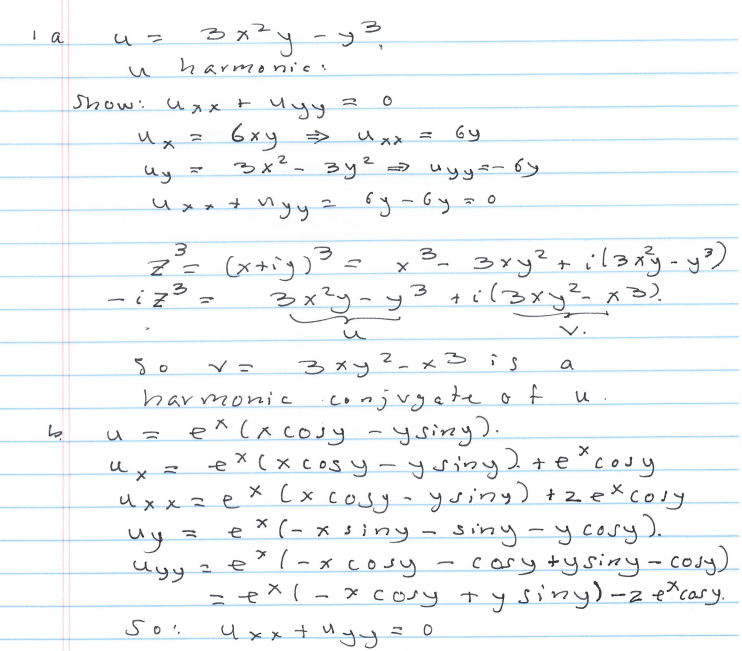 1 a u = 3x²y - y³.
u harmonic:
Show: uxx + uyy = 0
ux = 6xy ⇒ uxx = 6y
uy = 3x² - 3y² ⇒ uyy = -6y
uxx + uyy = 6y - 6y = 0
z³ = (x+iy)³ = x³ - 3xy² + i(3x²y - y³)
-iz³ = 3x²y - y³ + i(3xy² - x³).
u v.
So v = 3xy² - x³ is a
harmonic conjugate of u.
b. u = eˣ(x cosy - y siny).
ux = eˣ(x cosy - y siny) + eˣ cosy
uxx = eˣ(x cosy - y siny) + 2eˣ cosy
uy = eˣ(-x siny - siny - y cosy).
uyy = eˣ(-x cosy - cosy + y siny - cosy)
= eˣ(-x cosy + y siny) - 2eˣ cosy.
So: uxx + uyy = 0